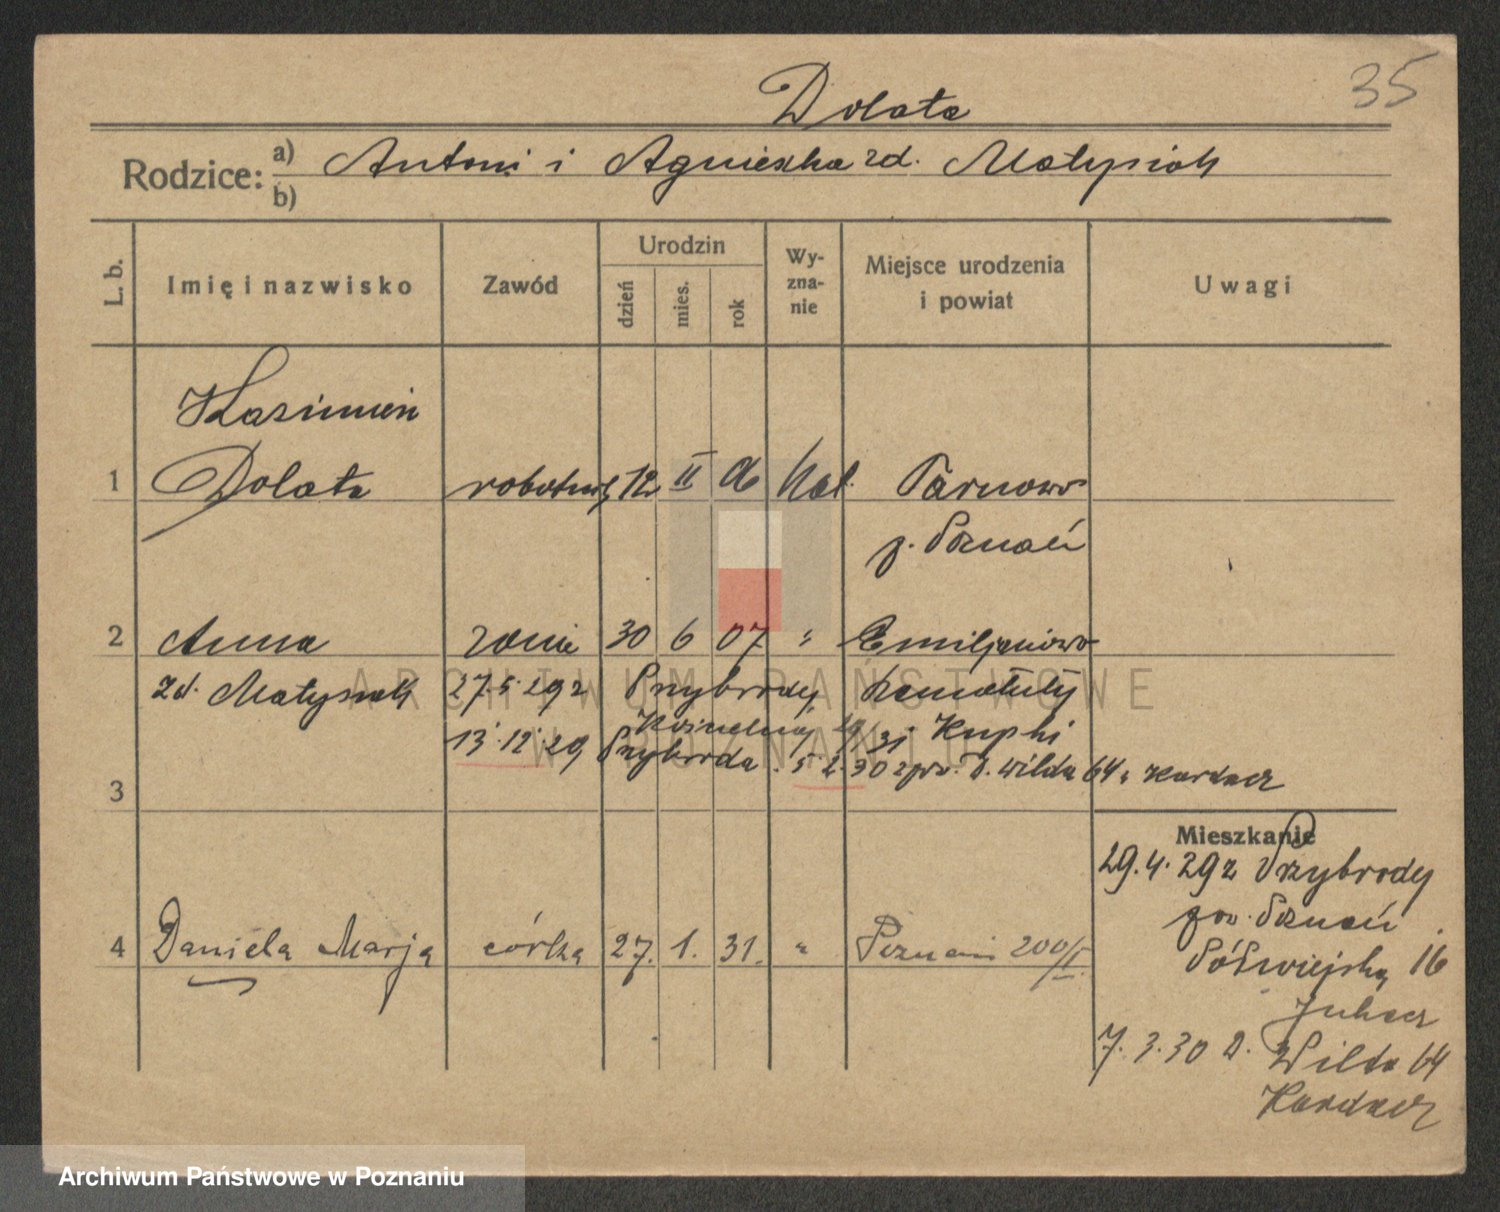 35
Dolata
Rodzice: a) Antoni i Agnieszka zd. Matysiak
b)
L. b. Imię i nazwisko Zawód Urodzin dzień mies. rok Wyznanie Miejsce urodzenia i powiat Uwagi
Kazimierz
1 Dolata robotnik 12 II 06 kat. Tarnowo
p. Poznań
2 Anna żona 30 6 07 " Emiljanowo
zd. Matysiak 27.5.29 z Przybrody
13.12.29 Przybroda 5.2.30 D. Wilda 64
3
Mieszkanie
29.4.29 z Przybrody
pow. Poznań
Półwiejska 16
4 Daniela Marja córka 27. 1. 31. " Poznań 200/II.
7.3.30 D. Wilda 64
ARCHIWUM PAŃSTWOWE
W POZNANIU
Archiwum Państwowe w Poznaniu